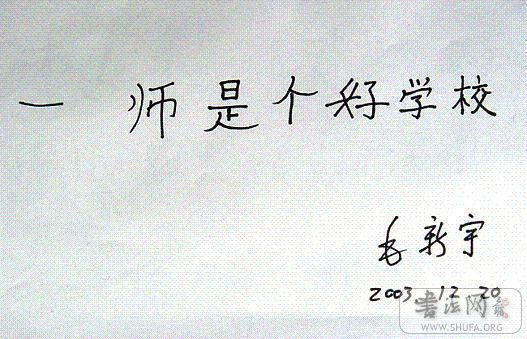 一师是个好学校
毛新宇
2003 12 20
书法网
WWW.SHUFA.ORG